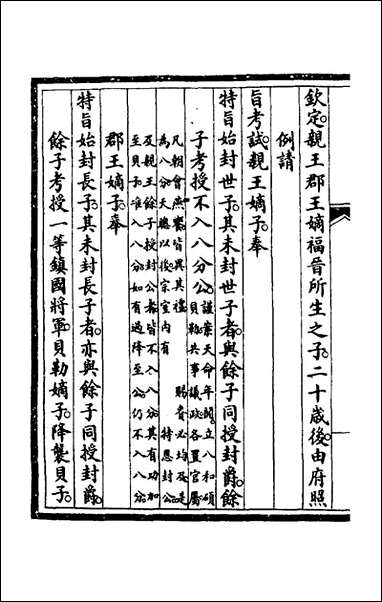 欽定。親王郡王嫡福晉所生之子。二十歲後。由府照
例請
旨考試。親王嫡子。奉
特旨始封世子。其未封世子者。與餘子同授封爵。餘
子考授不入八分公。謹案天命年間立八和碩
貝勒共事議政各置官屬
凡朝會燕饗皆異其禮 賜賚必均及是
為八分天聰以後宗室內有 特恩封公
及親王餘子授封公者皆不入八分其有功加
至貝子准入八分如有過降至公仍不入八分
郡王嫡子。奉
特旨始封長子。其未封長子者。亦與餘子同授封爵。
餘子考授一等鎮國將軍。貝勒嫡子。降襲貝子。